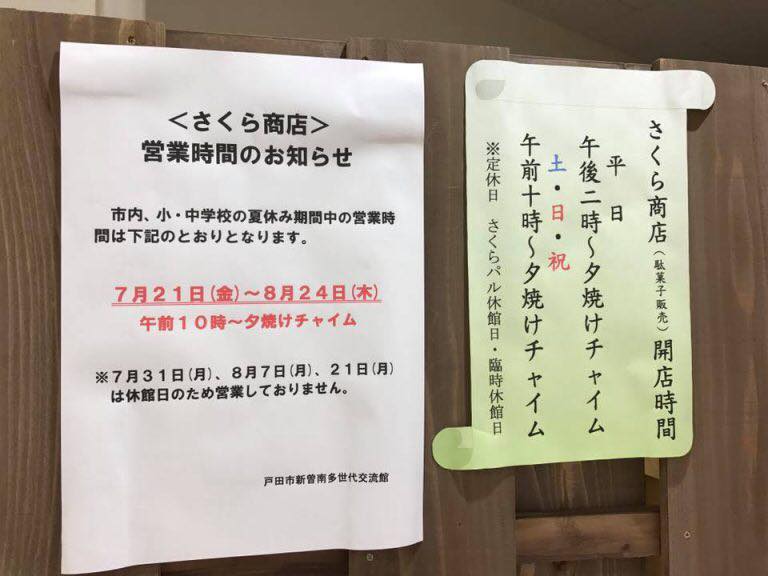 ＜さくら商店＞
営業時間のお知らせ
市内、小・中学校の夏休み期間中の営業時
間は下記のとおりとなります。
７月２１日(金)～８月２４日(木)
午前１０時～夕焼けチャイム
※７月３１日(月)、８月７日(月)、２１日(月)
は休館日のため営業しておりません。
戸田市新曽南多世代交流館
さくら商店（駄菓子販売）開店時間
平日
午後二時～夕焼けチャイム
土・日・祝
午前十時～夕焼けチャイム
※定休日　さくらパル休館日・臨時休館日